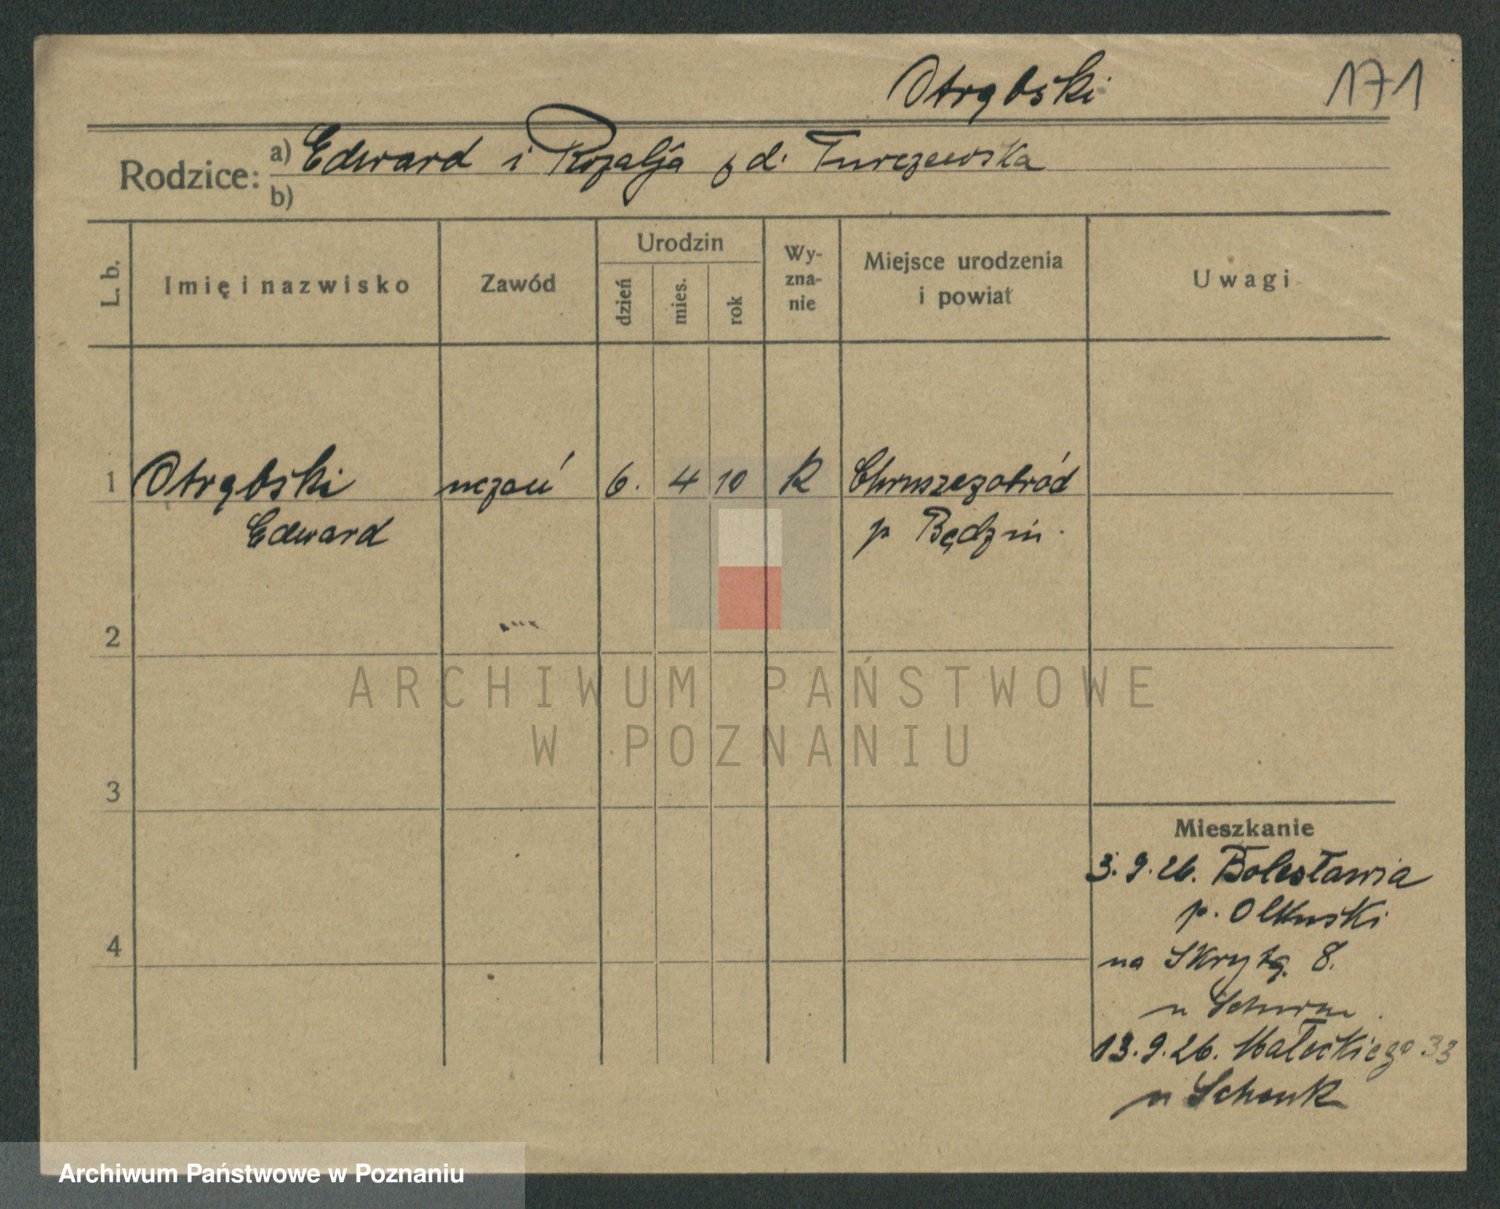 Otrąbski 171
Rodzice: a) Edward i Rozalja z d. Turczewska
b)
L. b. Imię i nazwisko Zawód Urodzin dzień mies. rok Wy-zna-nie Miejsce urodzenia i powiat Uwagi
1 Otrąbski uczeń 6. 4 10 K Chruszczobród
Edward p Będzin
2
3
4
Mieszkanie
3.9.26. Bolesławia
p. Olkuski
na Skrytą 8.
u
13.9.26. Małeckiego 33
u Schenk
ARCHIWUM PAŃSTWOWE
W POZNANIU
Archiwum Państwowe w Poznaniu